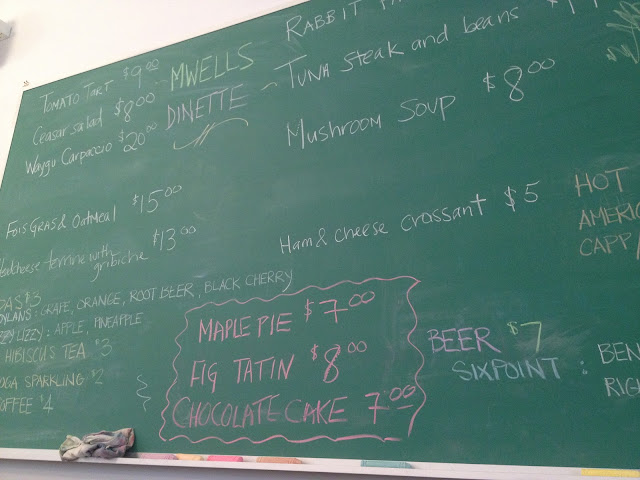 TOMATO TART $9.00
Ceasar salad $8.00
Waygu Carpaccio $20.00
MWELLS
DINETTE
RABBIT
TUNA Steak and beans
Mushroom Soup $8.00
FOIS GRAS & OATMEAL $15.00
terrine with gribiche $13.00
Ham & cheese crossant $5
HOT
AMERIC
CAPP/
$3
DYLANS: GRAPE, ORANGE, ROOT BEER, BLACK CHERRY
LIZZY: APPLE, PINEAPPLE
HIBISCUS TEA $3
SPARKLING $2
OFFEE $4
MAPLE PIE $7.00
FIG TATIN $8.00
CHOCOLATE CAKE 7.00
BEER $7
SIXPOINT: BEN
RIG